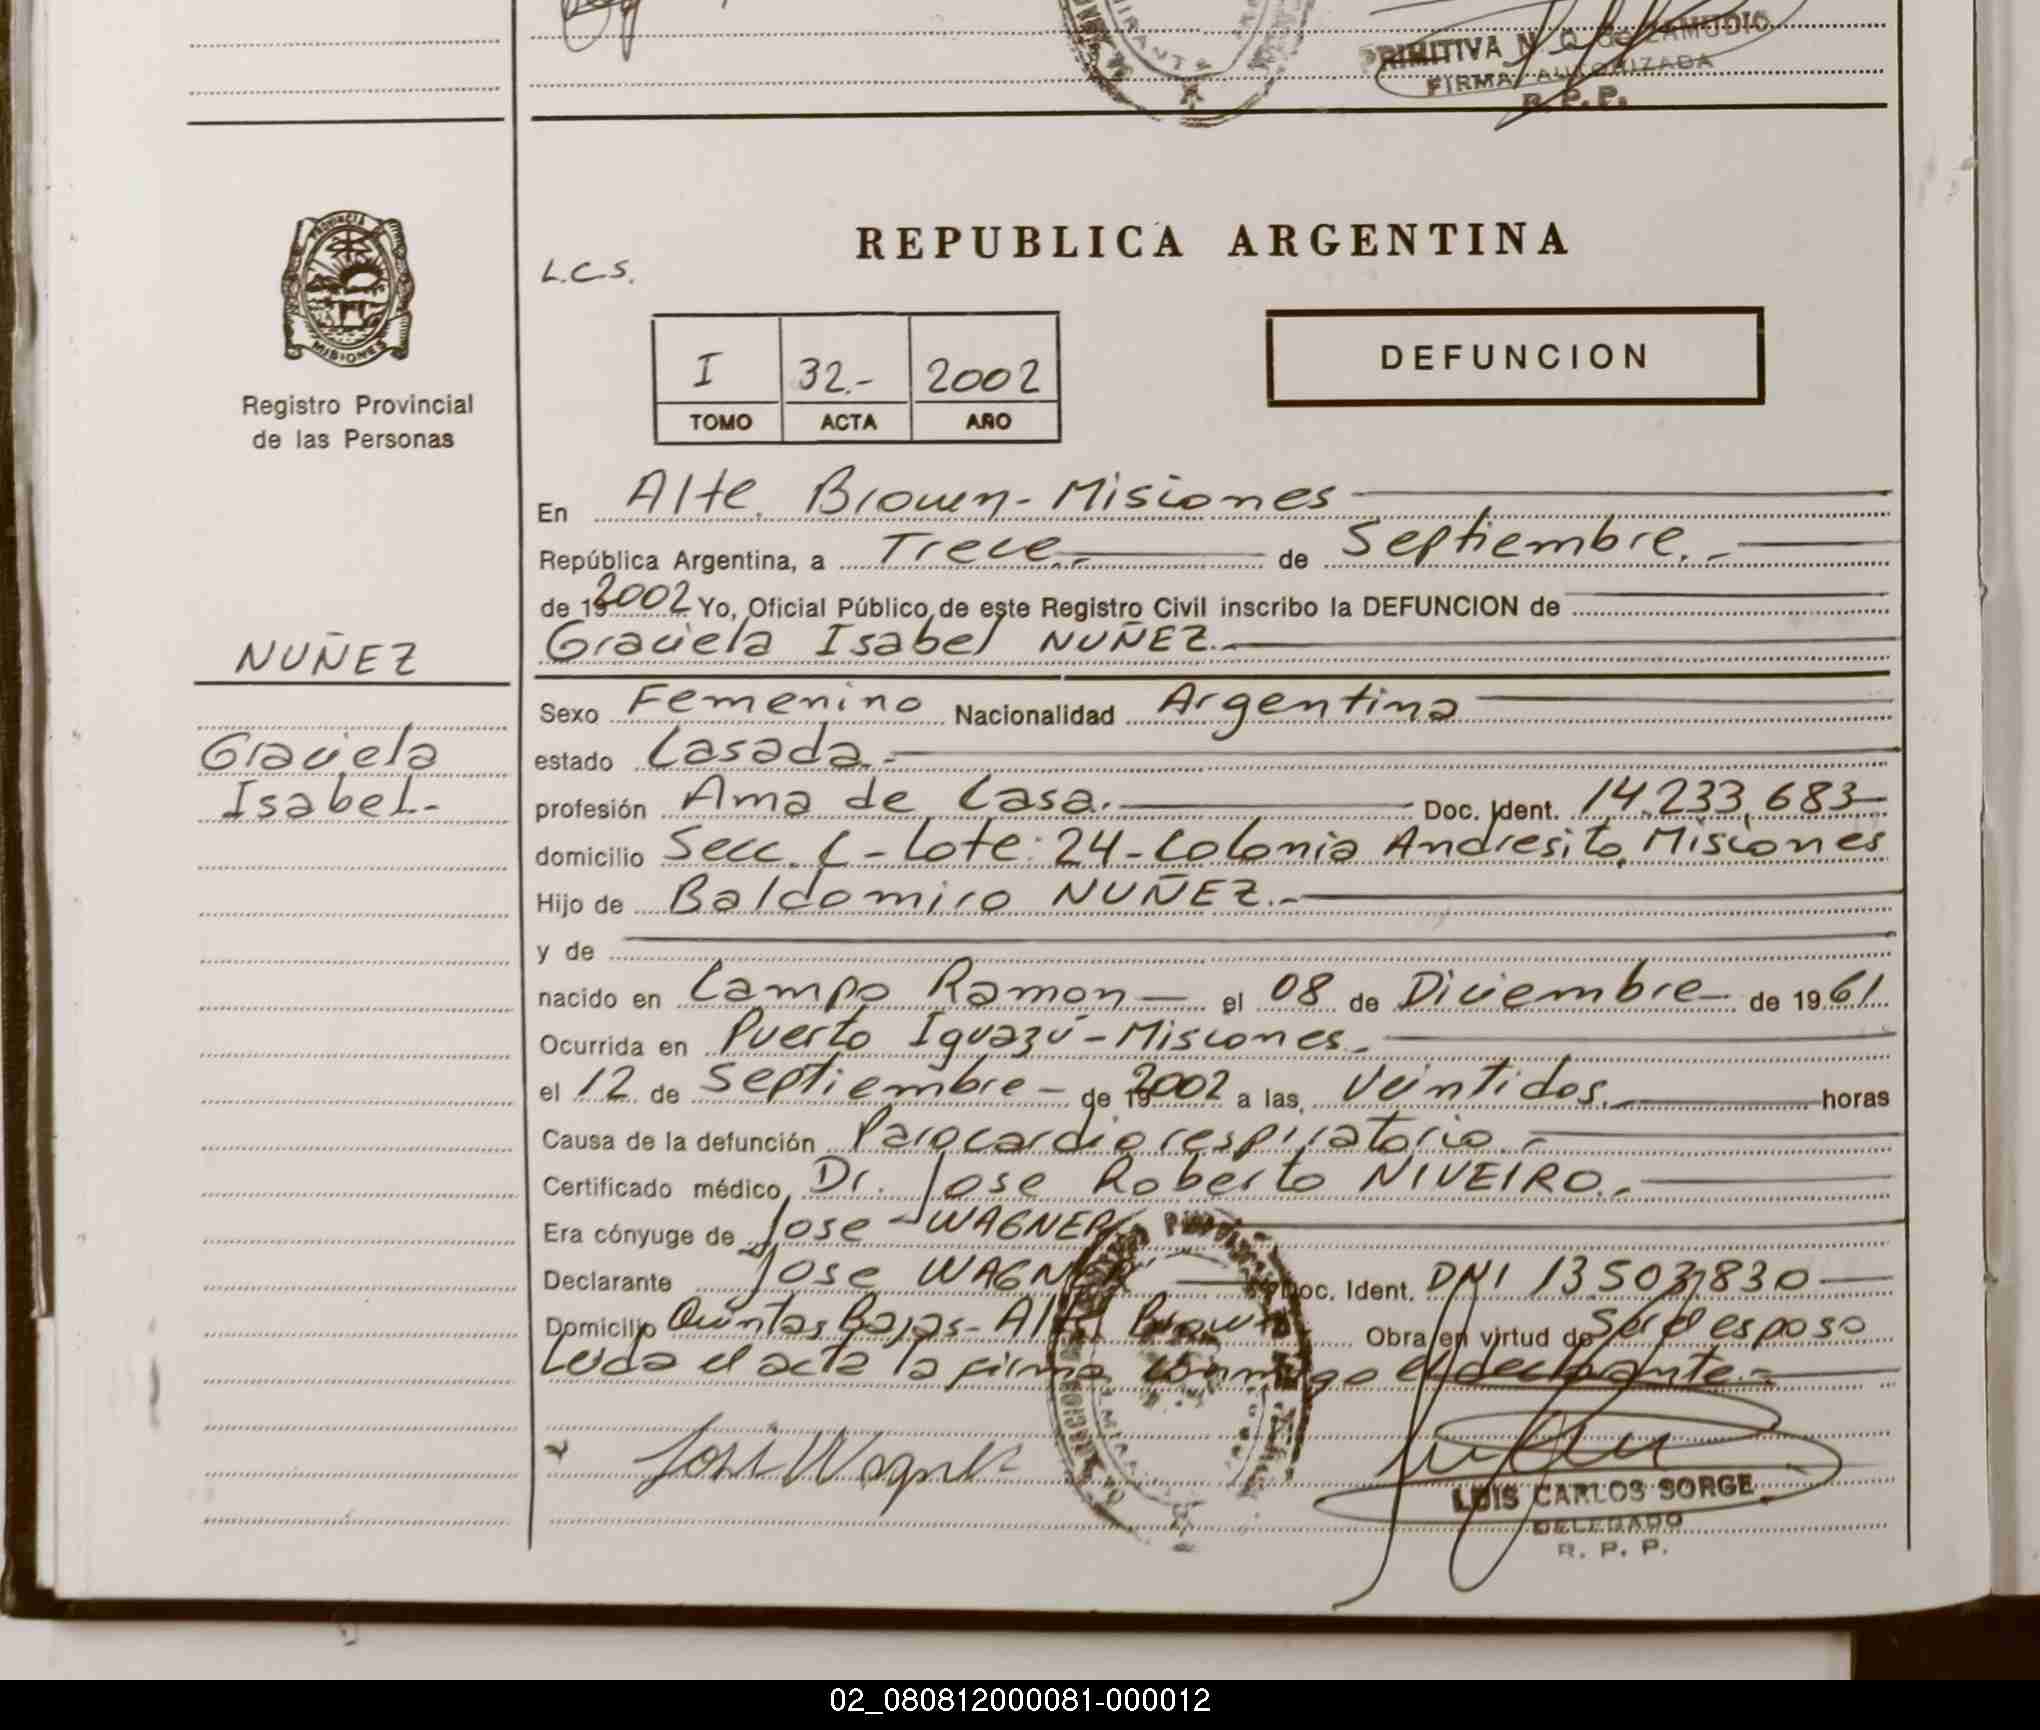 PRIMITIVA N. Q. de ZAMUDIO
FIRMA AUTORIZADA
R. P. P.
PROVINCIA
MISIONES
Registro Provincial
de las Personas
REPUBLICA ARGENTINA
L.C.S.
I 32.- 2002
TOMO ACTA AÑO
DEFUNCION
En Alte. Brown-Misiones
República Argentina, a Trece.- de Septiembre.-
de 19 2002 Yo, Oficial Público de este Registro Civil inscribo la DEFUNCION de
Graciela Isabel NUÑEZ.-
NUÑEZ
Graciela
Isabel-
Sexo Femenino Nacionalidad Argentina
estado Casada.-
profesión Ama de Casa.- Doc. Ident. 14.233.683
domicilio Secc. C - Lote: 24-Colonia Andresito, Misiones
Hijo de Baldomiro NUÑEZ.-
y de
nacido en Campo Ramon- el 08 de Diciembre- de 19 61
Ocurrida en Puerto Iguazú-Misiones.-
el 12 de Septiembre- de 19 2002 a las, Veintidos.- horas
Causa de la defunción Parocardiorespiratorio.-
Certificado médico Dr. Jose Roberto NIVEIRO.-
Era cónyuge de Jose WAGNER
Declarante Jose WAGNER Doc. Ident. DNI 13.503.830
Domicilio Quintas Bajas-Alte Brown Obra en virtud de Ser el esposo
Leida el acta la firma conmigo el declarante.-
Jose Wagner
LUIS CARLOS SORGE
DELEGADO
R. P. P.
02_080812000081-000012